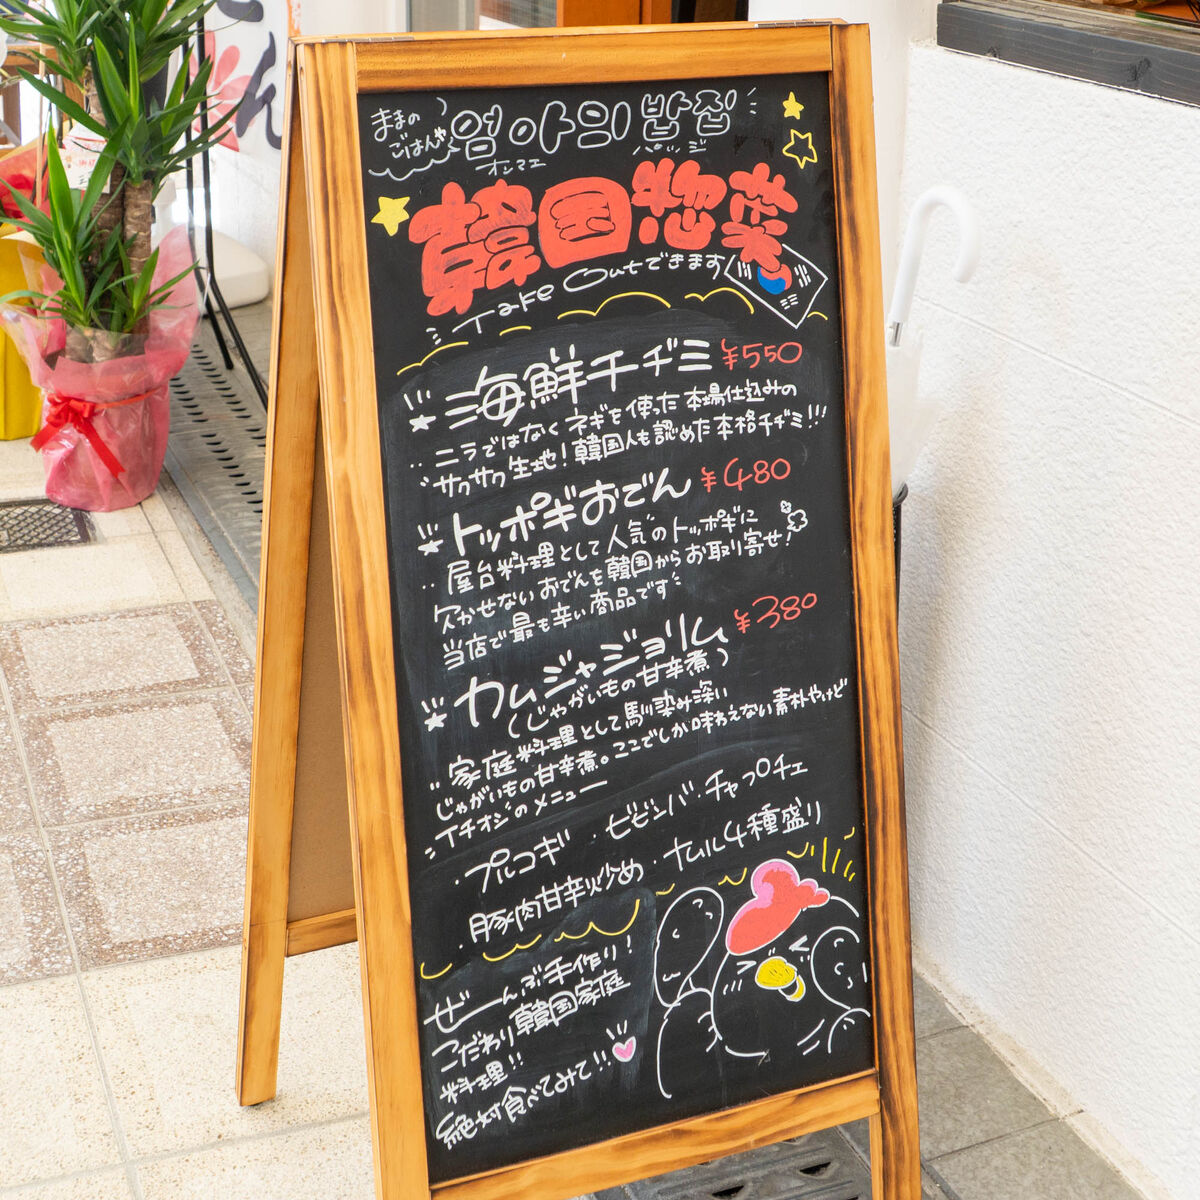 ままの
ごはんや
엄아의 밥집
オンマエ
パッジ
韓国惣菜
Take Outできます
海鮮チヂミ ¥550
ニラではなくネギを使った本場仕込みの
サクサク生地!韓国人も認めた本格チヂミ!!!
トッポギおでん ¥480
屋台料理として人気のトッポギに
欠かせないおでんを韓国からお取り寄せ!
当店で最も辛い商品です
カムジャジョリム ¥380
(じゃがいもの甘辛煮)
家庭料理として馴染み深い
じゃがいもの甘辛煮。ここでしか味わえない素朴やけど
イチオシのメニュー
・プルコギ ・ビビンバ ・チャプチェ
・豚肉甘辛炒め ・ナムル4種盛り
ぜーんぶ手作り!
こだわり韓国家庭
料理!!
絶対食べてみて!!